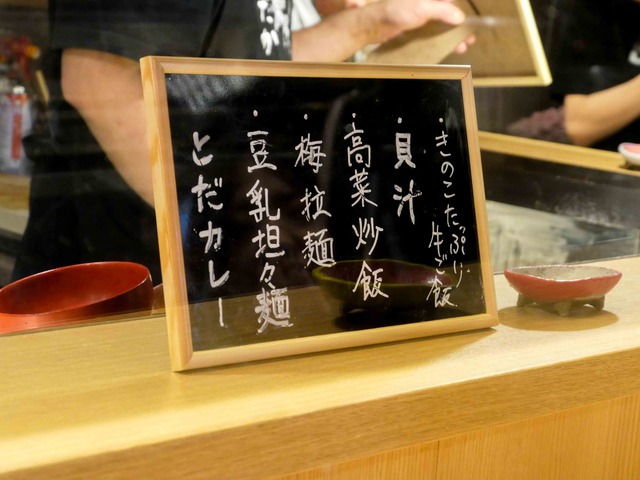 ・きのこたっぷり
牛ご飯
・貝汁
・高菜炒飯
・梅拉麺
・豆乳坦々麺
とだカレー
だか